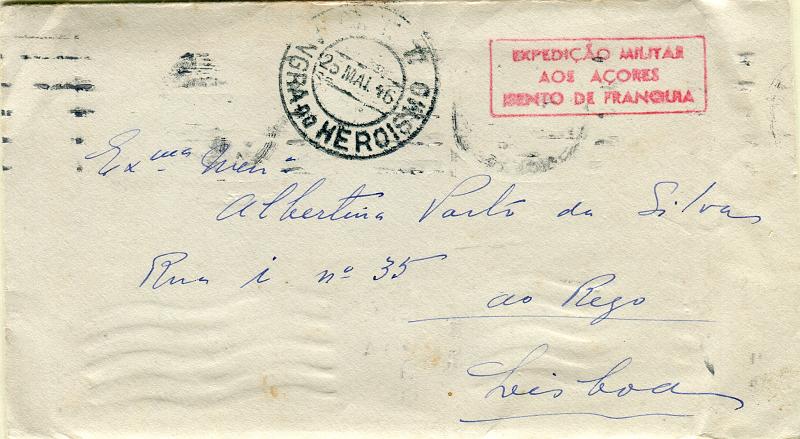 EXPEDIÇÃO MILITAR
AOS AÇORES
ISENTO DE FRANQUIA
NGRA DO HEROISMO
25 MAI. 46
Exma Men.a
Albertina Porto da Silva
Rua i nº 35
ao Rego
Lisboa